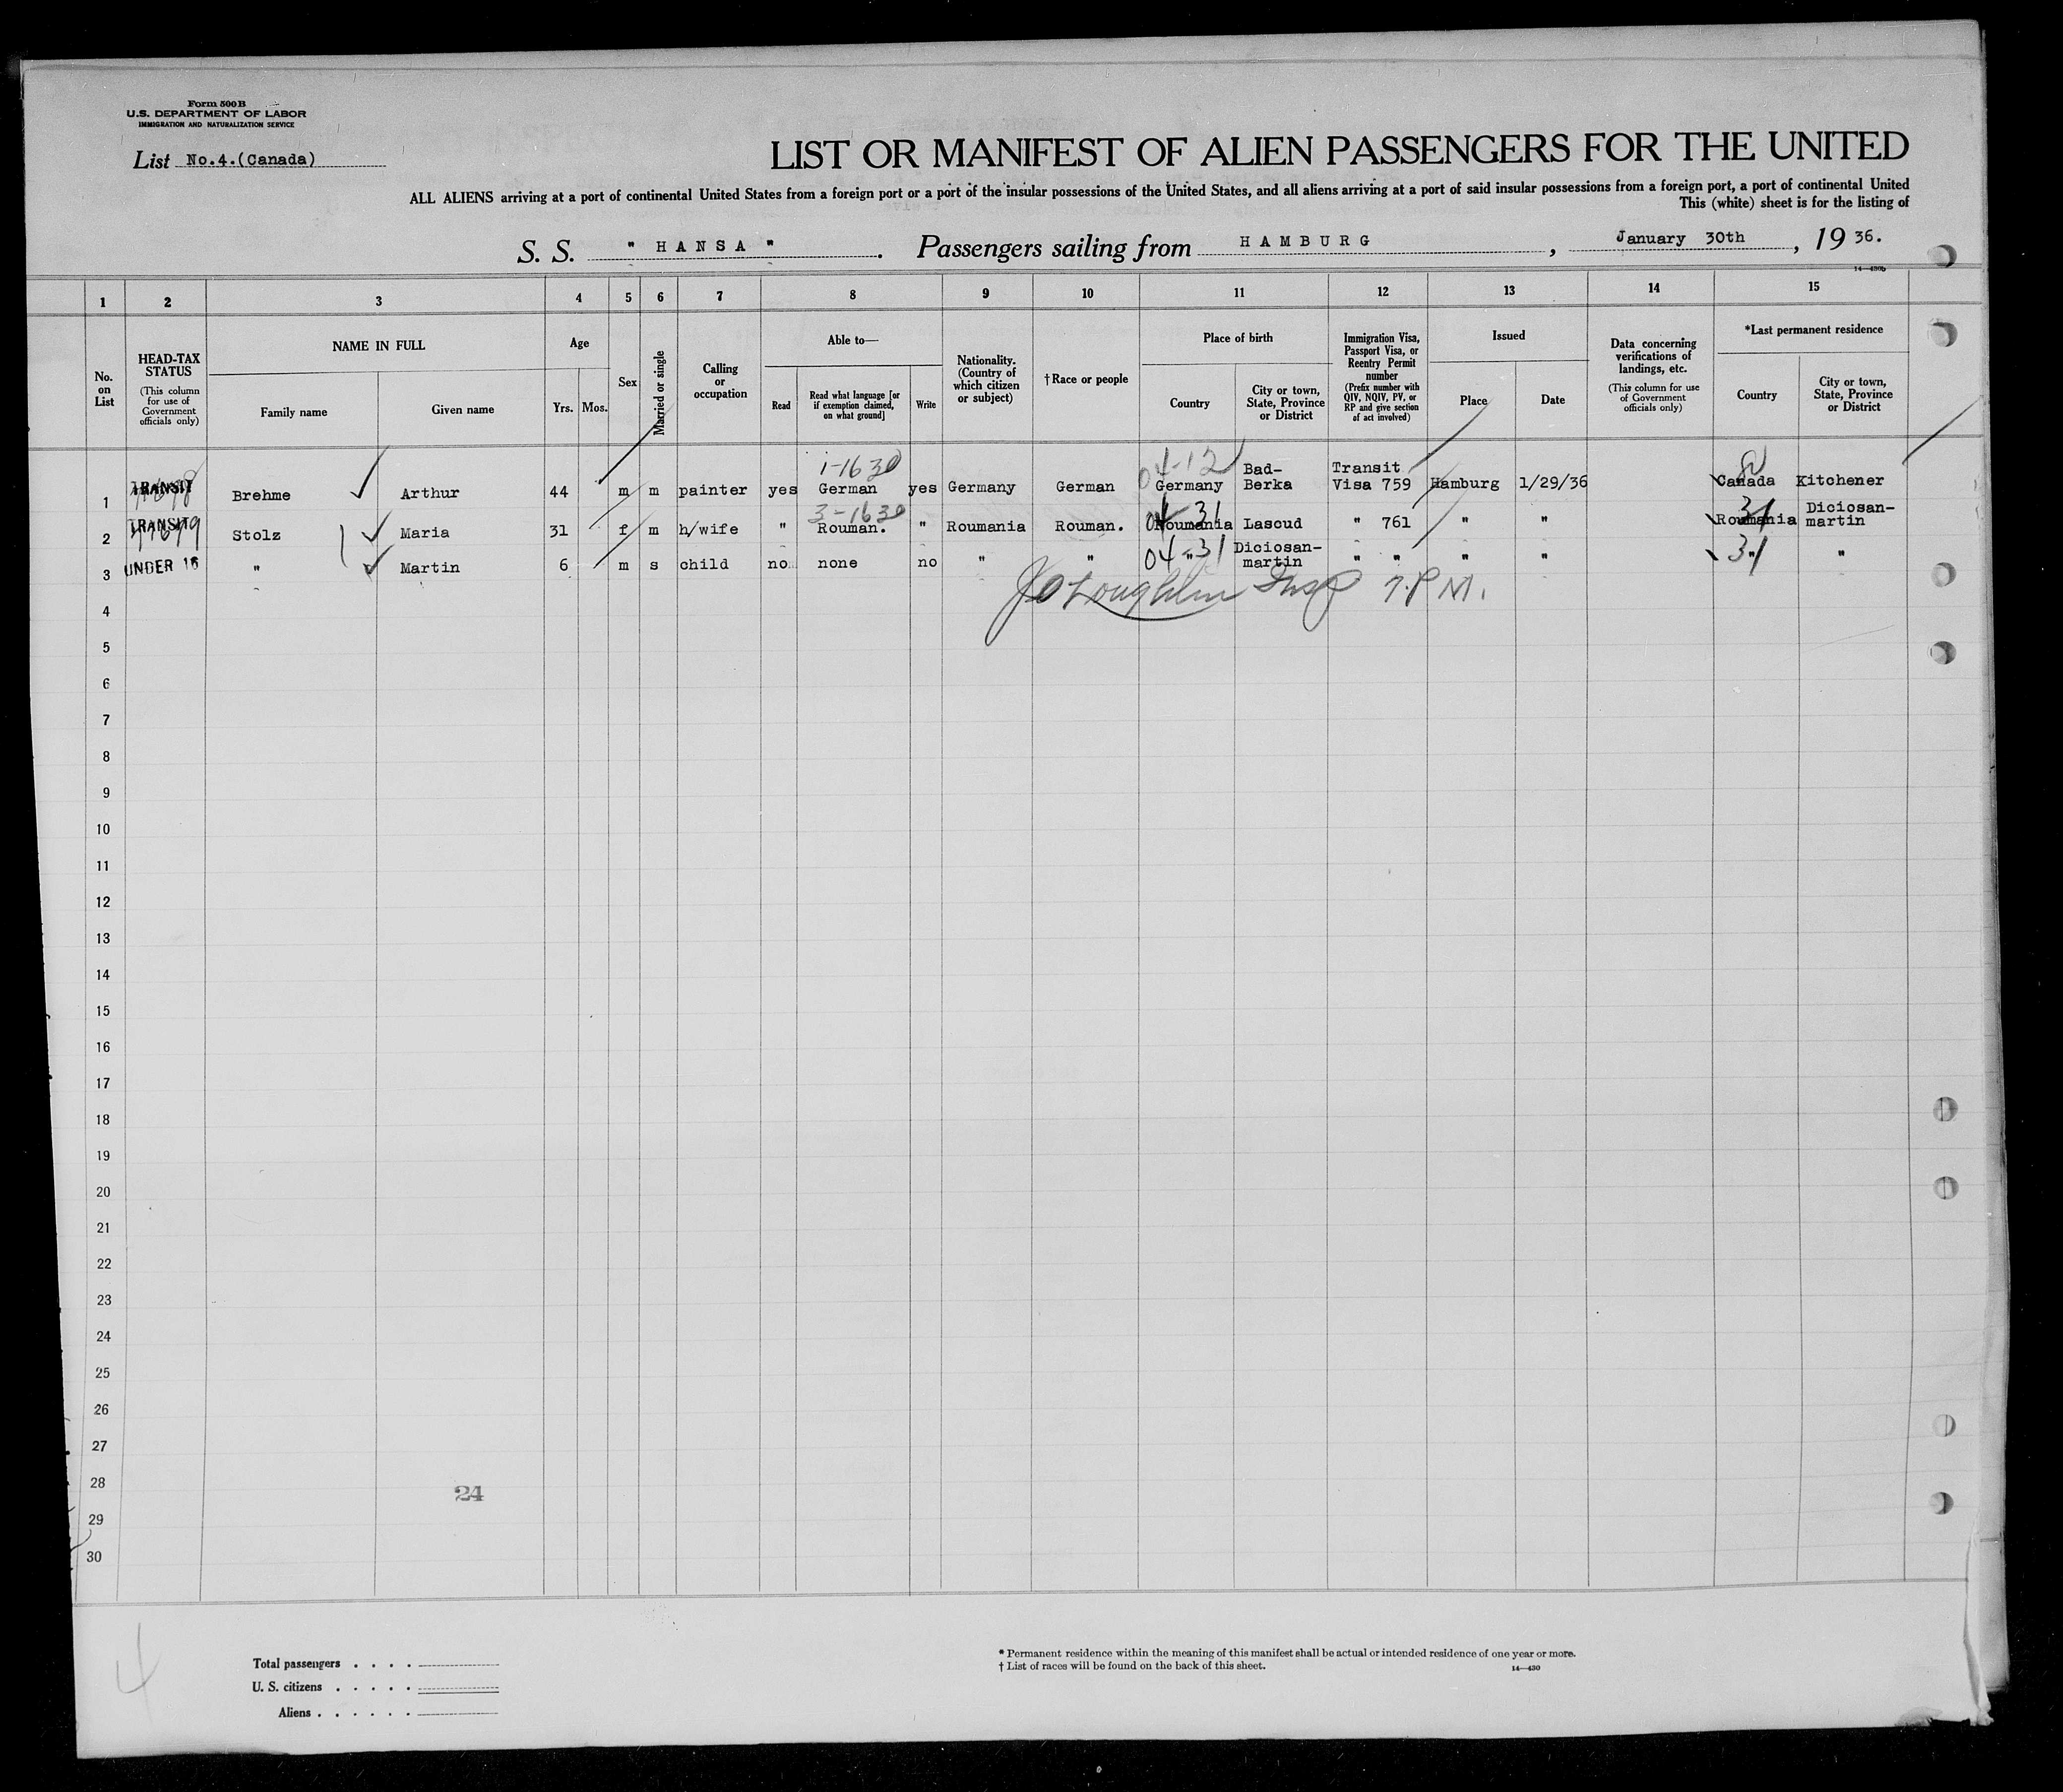 Form 500B
U.S. DEPARTMENT OF LABOR
IMMIGRATION AND NATURALIZATION SERVICE
List No.4.(Canada)
LIST OR MANIFEST OF ALIEN PASSENGERS FOR THE UNITED
ALL ALIENS arriving at a port of continental United States from a foreign port or a port of the insular possessions of the United States, and all aliens arriving at a port of said insular possessions from a foreign port, a port of continental United
This (white) sheet is for the listing of
S. S. " HANSA ". Passengers sailing from HAMBURG, January 30th, 1936.
14—430b
1 2 3 4 5 6 7 8 9 10 11 12 13 14 15
No. on List
HEAD-TAX STATUS
(This column for use of Government officials only)
NAME IN FULL
Family name
Given name
Age
Yrs. Mos.
Sex
Married or single
Calling or occupation
Able to—
Read
Read what language [or if exemption claimed, on what ground]
Write
Nationality. (Country of which citizen or subject)
†Race or people
Place of birth
Country
City or town, State, Province or District
Immigration Visa, Passport Visa, or Reentry Permit number
(Prefix number with QIV, NQIV, PV, or RP and give section of act involved)
Issued
Place
Date
Data concerning verifications of landings, etc.
(This column for use of Government officials only)
*Last permanent residence
Country
City or town, State, Province or District
1-1630 04-12
1 TRANSIT Brehme Arthur 44 m m painter yes German yes Germany German Germany Bad-Berka Transit Visa 759 Hamburg 1/29/36 Canada Kitchener
3-1630 04-31 31
2 TRANSIT Stolz Maria 31 f m h/wife " Rouman. " Roumania Rouman. Roumania Lascud " 761 " " Roumania Diciosan-martin
04-31 31
3 UNDER 16 " Martin 6 m s child no none no " " " Diciosan-martin " " " " " "
JO'Loughlin Insp T.P.M.
4
5
6
7
8
9
10
11
12
13
14
15
16
17
18
19
20
21
22
23
24
25
26
27
28
29
30
24
4
Total passengers . . . .
U. S. citizens . . . . .
Aliens . . . . . .
* Permanent residence within the meaning of this manifest shall be actual or intended residence of one year or more.
† List of races will be found on the back of this sheet.
14—430